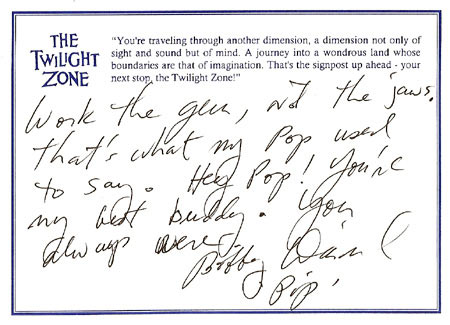 THE
TWILIGHT
ZONE
"You're traveling through another dimension, a dimension not only of
sight and sound but of mind. A journey into a wondrous land whose
boundaries are that of imagination. That's the signpost up ahead - your
next stop, the Twilight Zone!"
Work the gun, not the jaws.
that's what my Pop used
to say. Hey Pop! You're
my best buddy. You
always were.
Bobby Diamond
"Pip"